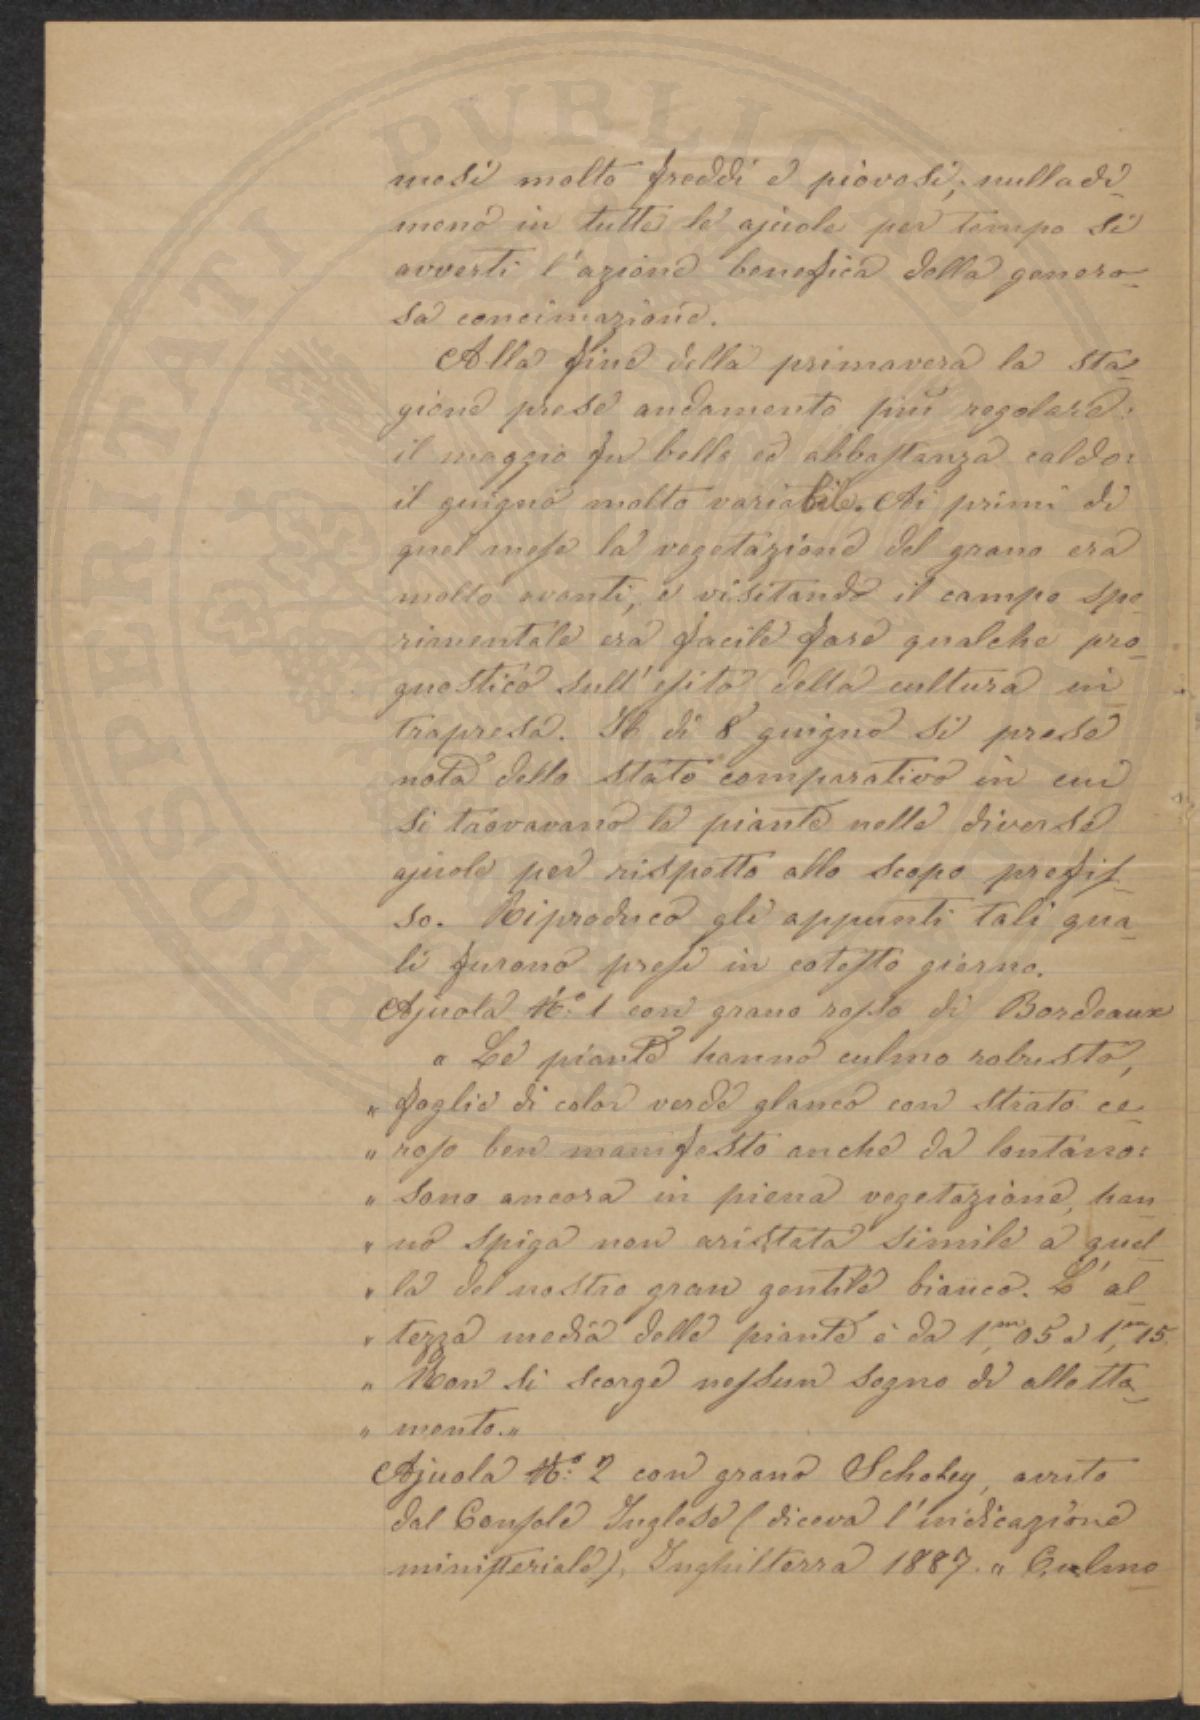 mesi molto freddi e piovosi; nulladi-
meno in tutte le ajuole per tempo si
avvertì l'azione benefica della genero-
sa concimazione.
Alla fine della primavera la sta-
gione prese andamento più regolare:
il maggio fu bello ed abbastanza caldo:
il giugno molto variabile. Ai primi di
quel mese la vegetazione del grano era
molto avanti, e visitando il campo spe-
rimentale era facile fare qualche pro-
gnostico sull'esito della cultura in-
trapresa. Il dì 8 giugno si prese
nota dello stato comparativo in cui
si trovavano le piante nelle diverse
ajuole per rispetto allo scopo prefis-
so. Riproduco gli appunti tali qua-
li furono presi in cotesto giorno.
Ajuola N.º 1 con grano rosso di Bordeaux
" Le piante hanno culmo robusto,
" foglie di color verde glauco con strato ce-
" roso ben manifesto anche da lontano:
" sono ancora in piena vegetazione, han-
" no spiga non aristata simile a quel-
" la del nostro gran gentile bianco. L'al-
" tezza media delle piante è da 1,m05 a 1,m15.
" Non si scorge nessun segno di alletta-
" mento."
Ajuola N.º 2 con grano Scholey, avuto
dal Console Inglese (diceva l'indicazione
ministeriale), Inghilterra 1887. " Culmo
PROSPERITATI PVBLICAE